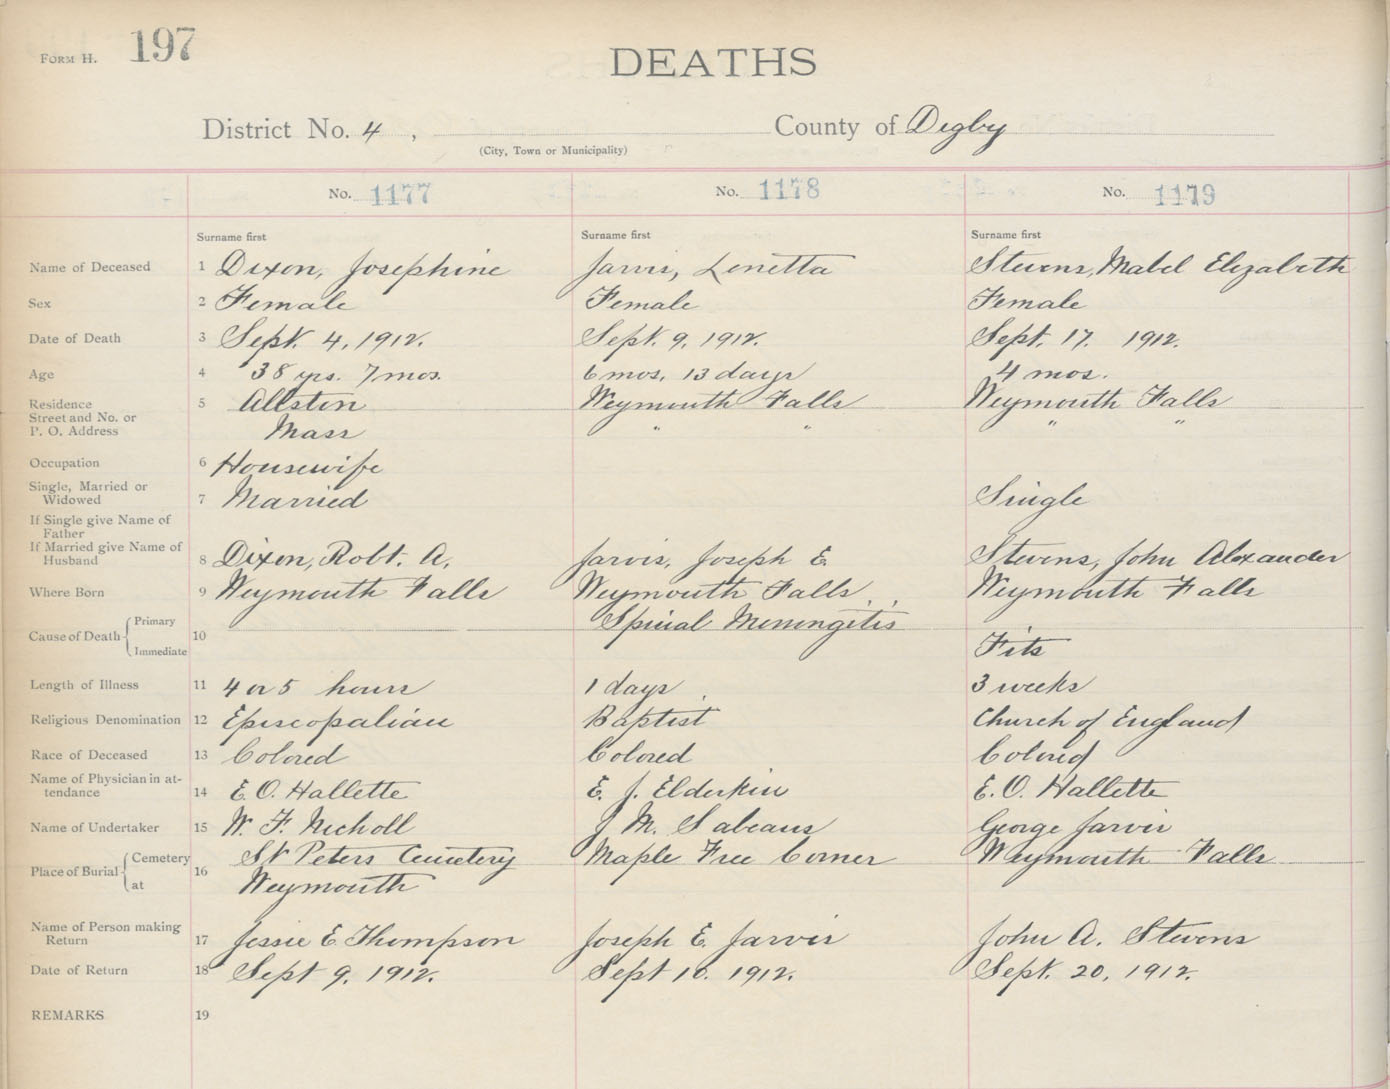 Form H. 197
DEATHS
District No. 4, County of Digby
(City, Town or Municipality)
No. 1177 No. 1178 No. 1179
Surname first Surname first Surname first
Name of Deceased 1 Dixon, Josephine Jarvis, Lenetta Stevens, Mabel Elizabeth
Sex 2 Female Female Female
Date of Death 3 Sept. 4, 1912. Sept. 9, 1912. Sept. 17. 1912.
Age 4 38 yrs. 7 mos. 6 mos. 13 days 4 mos.
Residence 5 Allston Weymouth Falls Weymouth Falls
Street and No. or
P. O. Address Mass " " " "
Occupation 6 Housewife
Single, Married or
Widowed 7 Married Single
If Single give Name of
Father
If Married give Name of
Husband 8 Dixon, Robt. A. Jarvis, Joseph E. Stevens, John Alexander
Where Born 9 Weymouth Falls Weymouth Falls Weymouth Falls
Cause of Death Primary 10 Spinal Meningitis
Immediate Fits
Length of Illness 11 4 or 5 hours 1 days 3 weeks
Religious Denomination 12 Episcopalian Baptist Church of England
Race of Deceased 13 Colored Colored Colored
Name of Physician in at-
tendance 14 E. O. Hallette E. J. Elderkin E. O. Hallette
Name of Undertaker 15 W. F. Nicholl J M. Sabeans George Jarvis
Place of Burial Cemetery 16 St Peters Cemetery Maple Free Corner Weymouth Falls
at Weymouth
Name of Person making
Return 17 Jessie E Thompson Joseph E. Jarvis John A. Stevens
Date of Return 18 Sept 9, 1912. Sept 10. 1912. Sept. 20, 1912.
REMARKS 19